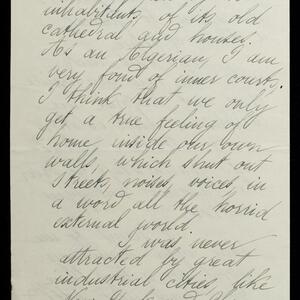 inhabitants, of its old
cathedral and houses.
As an Algerian, I am
very fond of inner courts,
I think that we only
get a true feeling of
home inside our own
walls, which shut out
streets, noises, voices, in
a word all the horrid
external world.
I was never
attracted by great
industrial cities, like